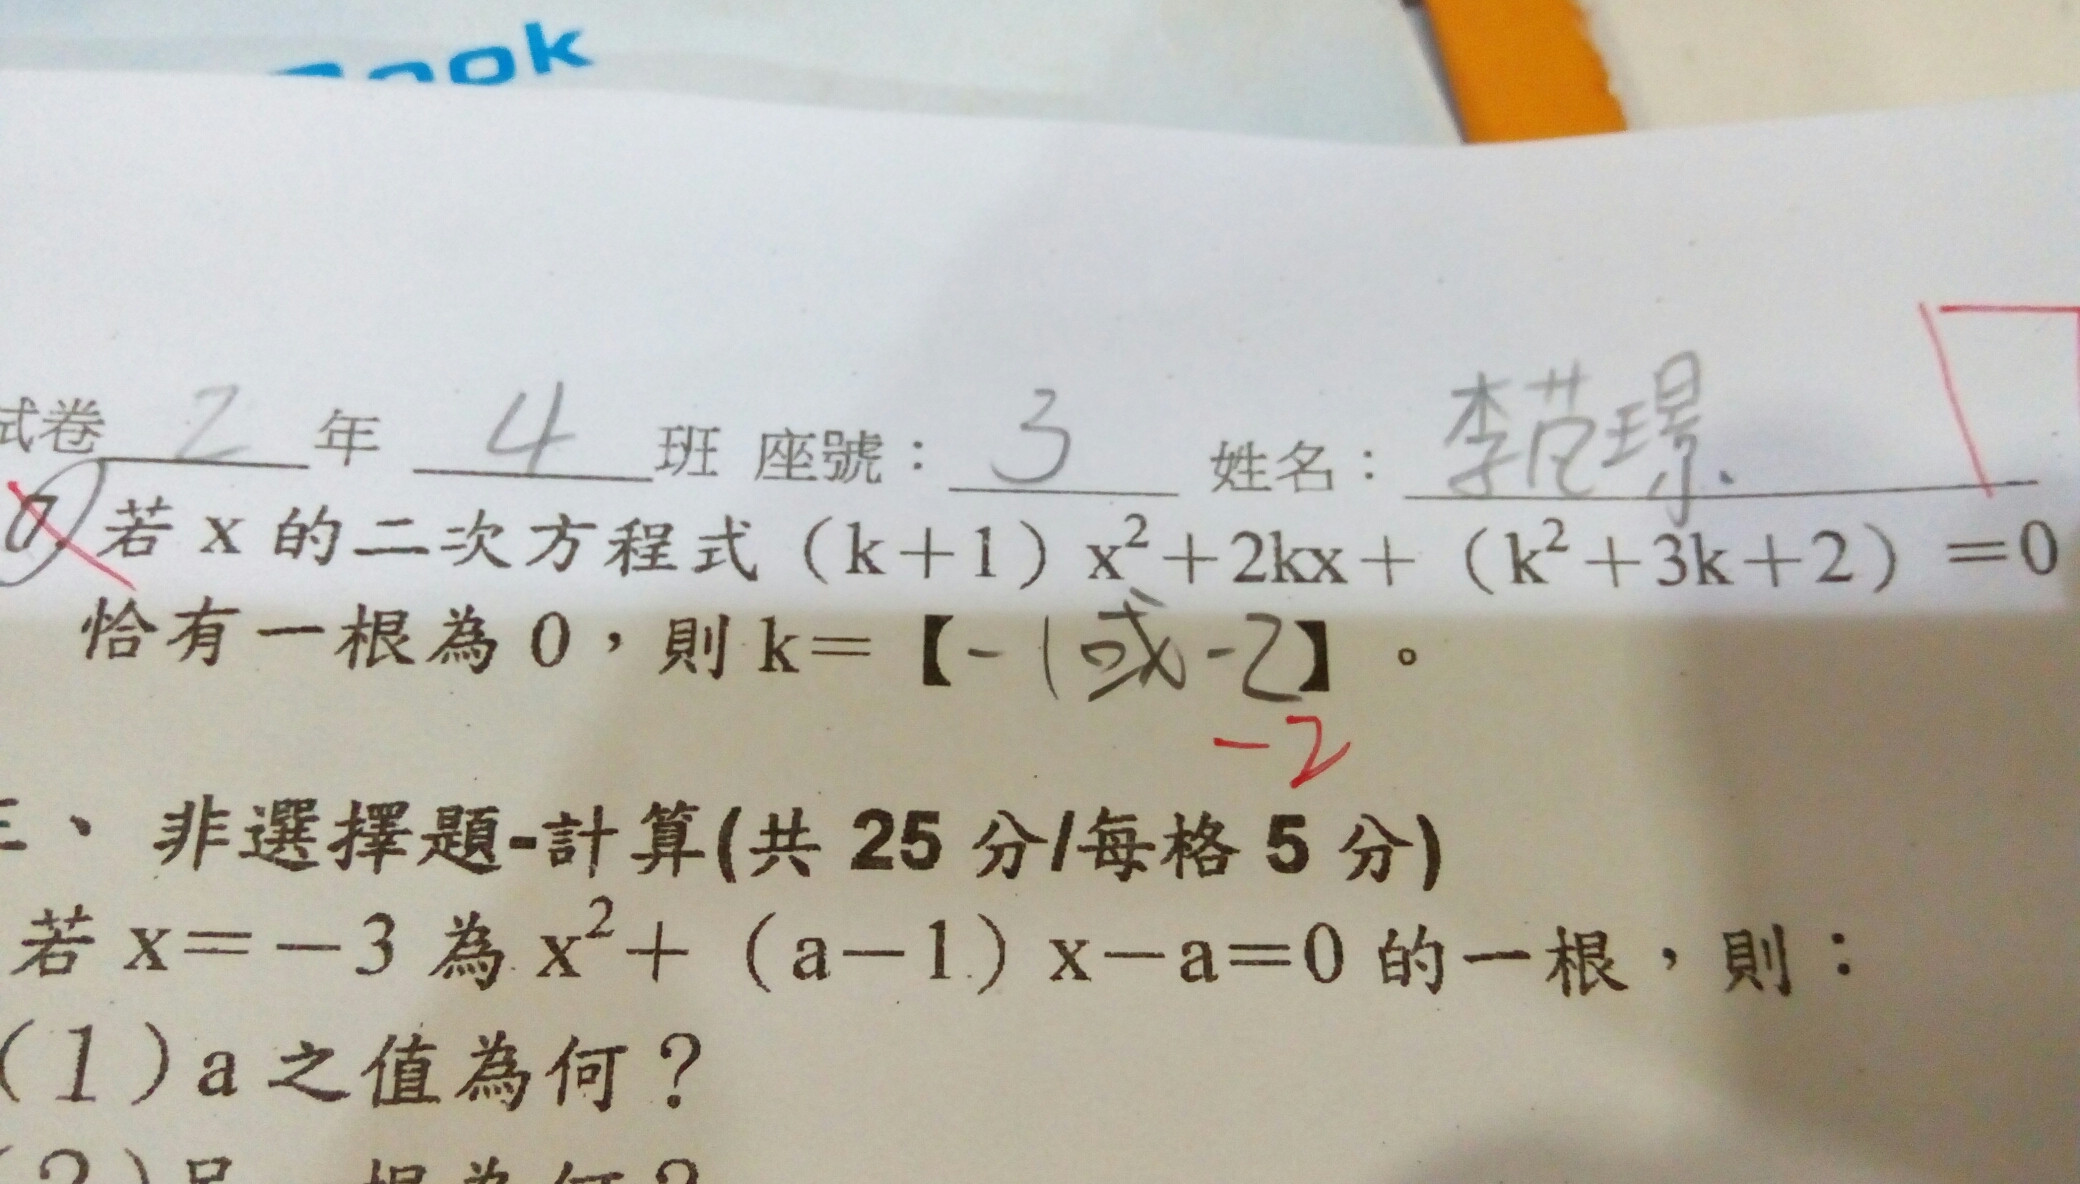 ook
試卷 2 年 4 班 座號： 3 姓名：李范璟
7. 若 x 的二次方程式（k＋1）x²＋2kx＋（k²＋3k＋2）＝0
恰有一根為 0，則 k＝【-1或-2】。
-2
三、非選擇題-計算(共 25 分/每格 5 分)
若 x＝－3 為 x²＋（a－1）x－a＝0 的一根，則：
（1）a 之值為何？